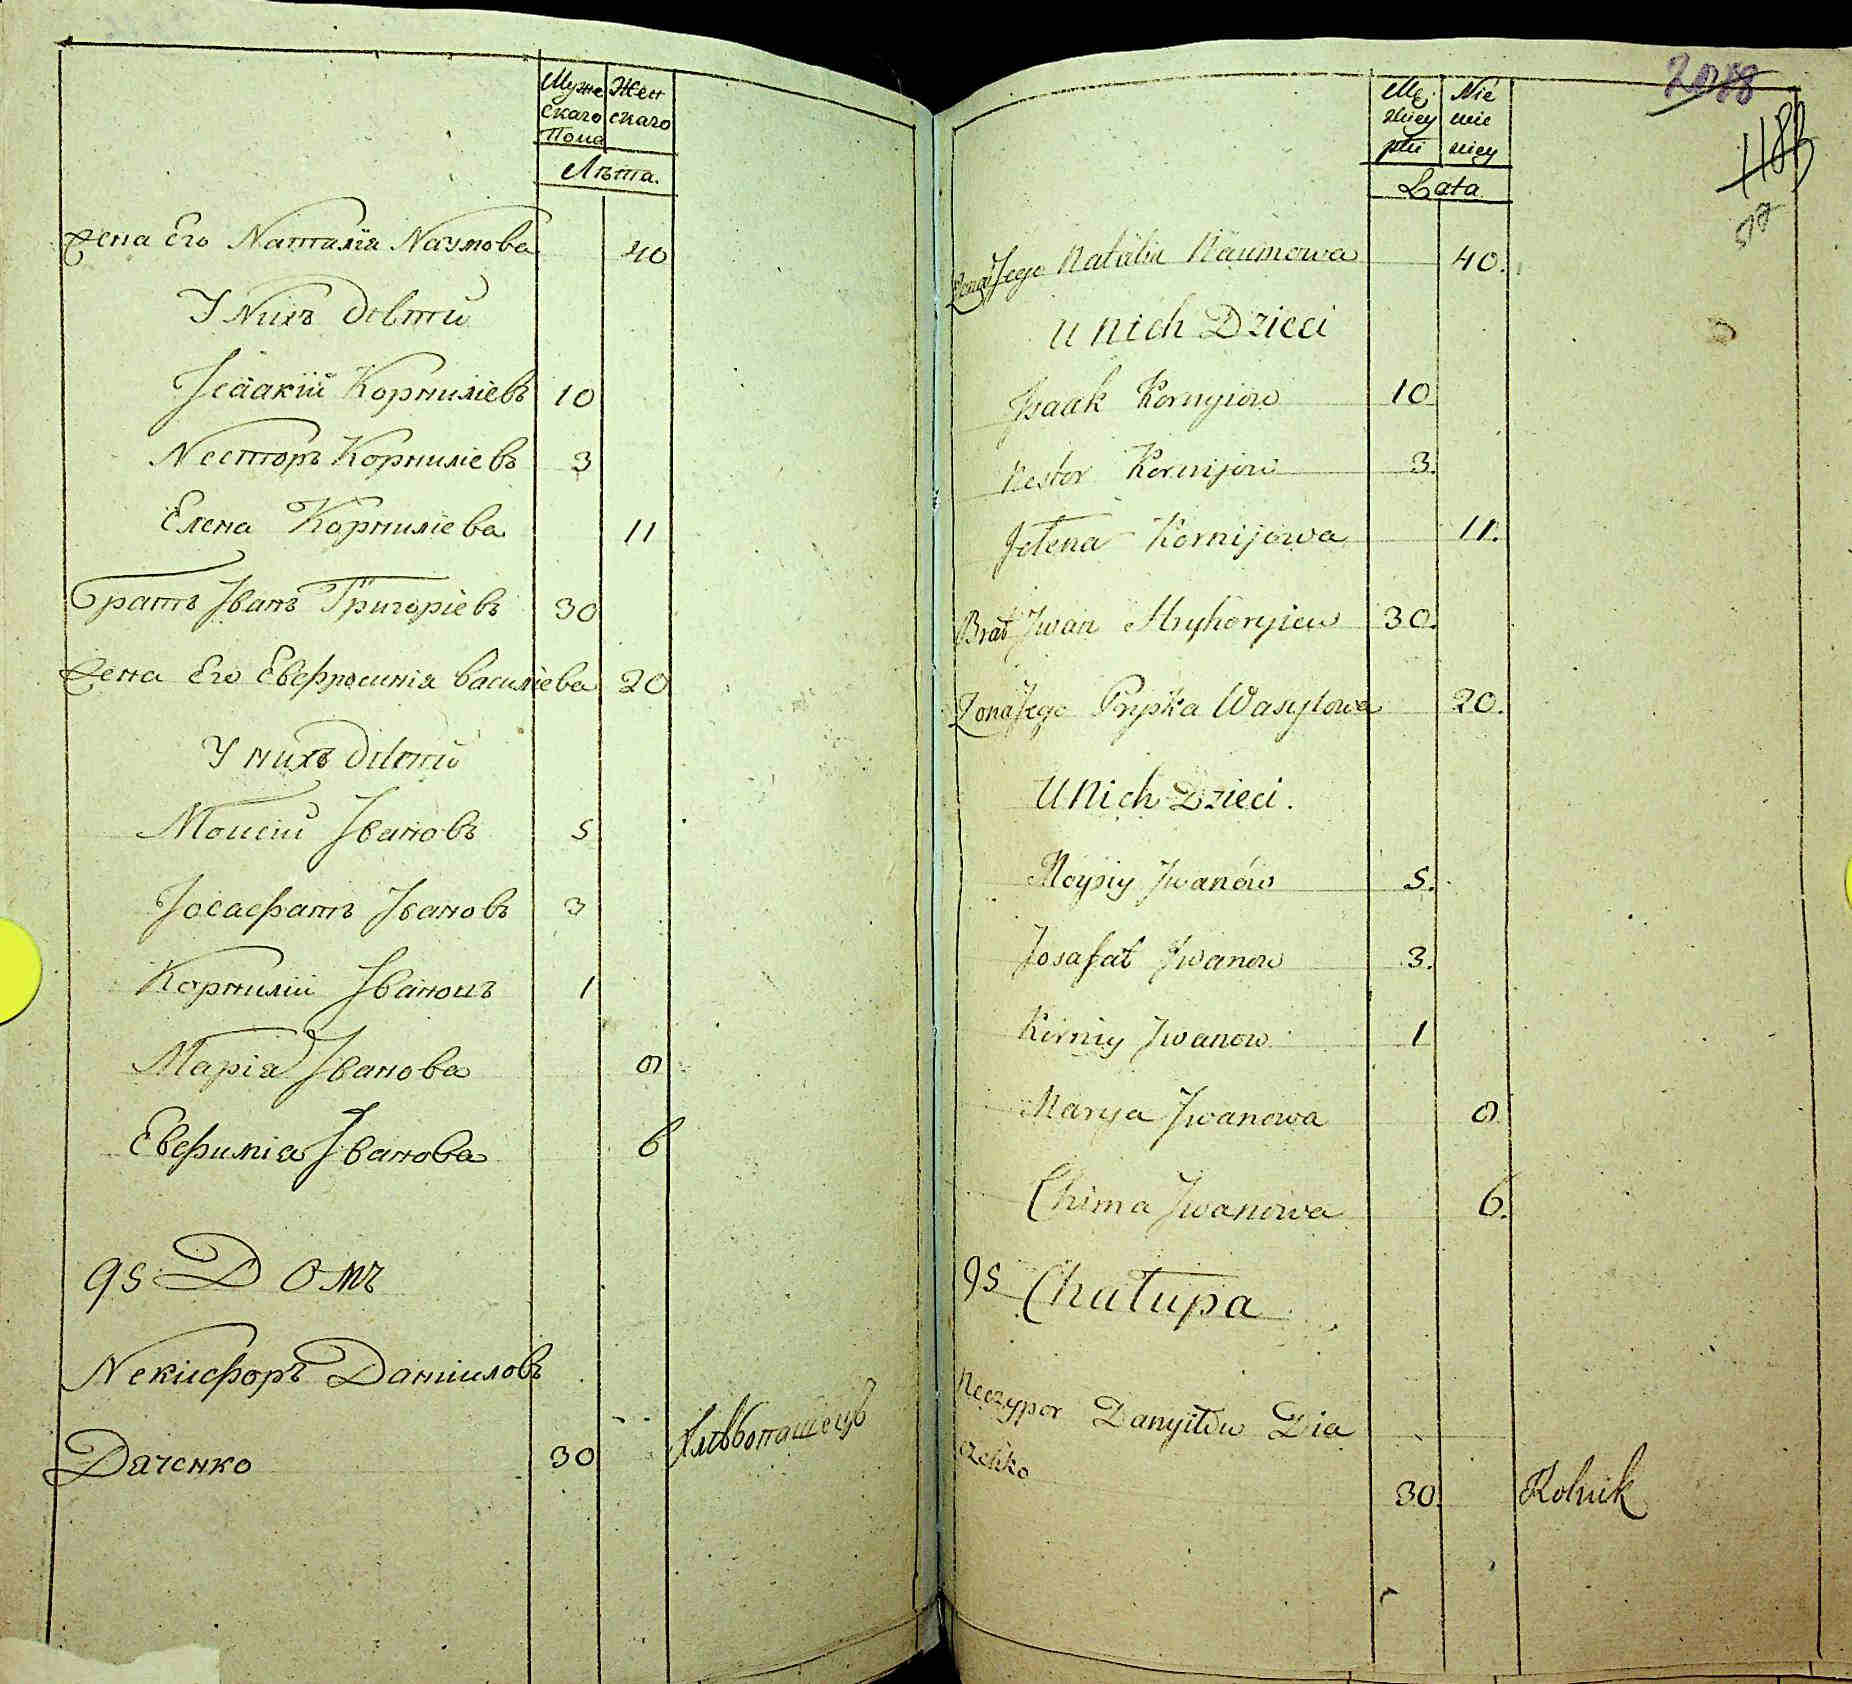 Муже Жен
скаго скаго
Пола
Лѣта.
Жена Его Наталія Наумова 40
У Нихъ Дѣти
Ісаакій Корниліевъ 10
Несторъ Корниліевъ 3
Елена Корниліева 11
Братъ Іванъ Григоріевъ 30
Жена Его Евфросинія Василіева 20
У нихъ Дѣти
Моисій Івановъ 5
Іосафатъ Івановъ 3
Корнилій Івановъ 1
Марія Іванова 9
Евфимія Іванова 6
95 Домъ
Никифоръ Даніиловъ
Дяченко 30 Хлѣбопашецъ
2088
1188
Mę Nie
zkiey wie
płci sciey
Lata
Zona Jego Natalia Naumowa 40.
u nich Dzieci
Jsaak Kornyiow 10
Nestor Kornijow 3.
Jełena Kornijowa 11.
Brat Jwan Hryhoryiew 30.
Zona Jego Pryśka Wasylowa 20.
u Nich Dzieci.
Moysiy Jwanów 5.
Josafat Jwanow 3.
Korniy Jwanow 1
Marya Jwanowa 9
Chima Jwanowa 6.
95 Chałupa
Neczypor Danyiłow Dia
czeńko 30. Rolnik